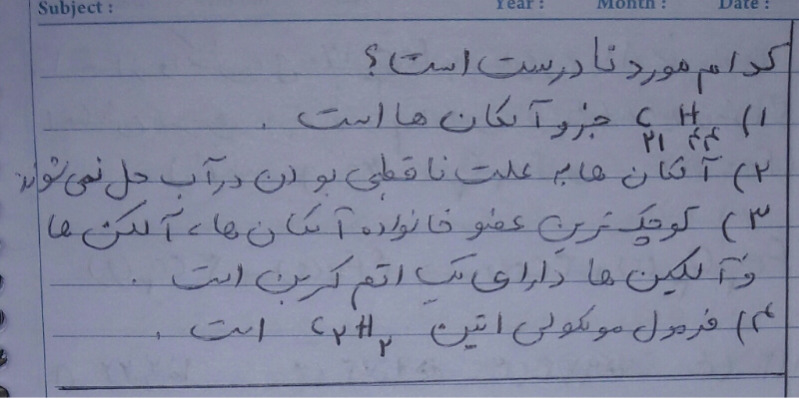 Subject : Year : Month : Date :
کدام مورد نادرست است؟
۱) C۲۱H۴۴ جزو آلکان ها است .
۲) آلکان ها به علت ناقطبی بودن در آب حل نمی شوند
۳) کوچک ترین عضو خانواده آلکان ها، آلکن ها
و آلکین ها دارای یک اتم کربن است .
۴) فرمول مولکولی اتین C۲H۲ است .